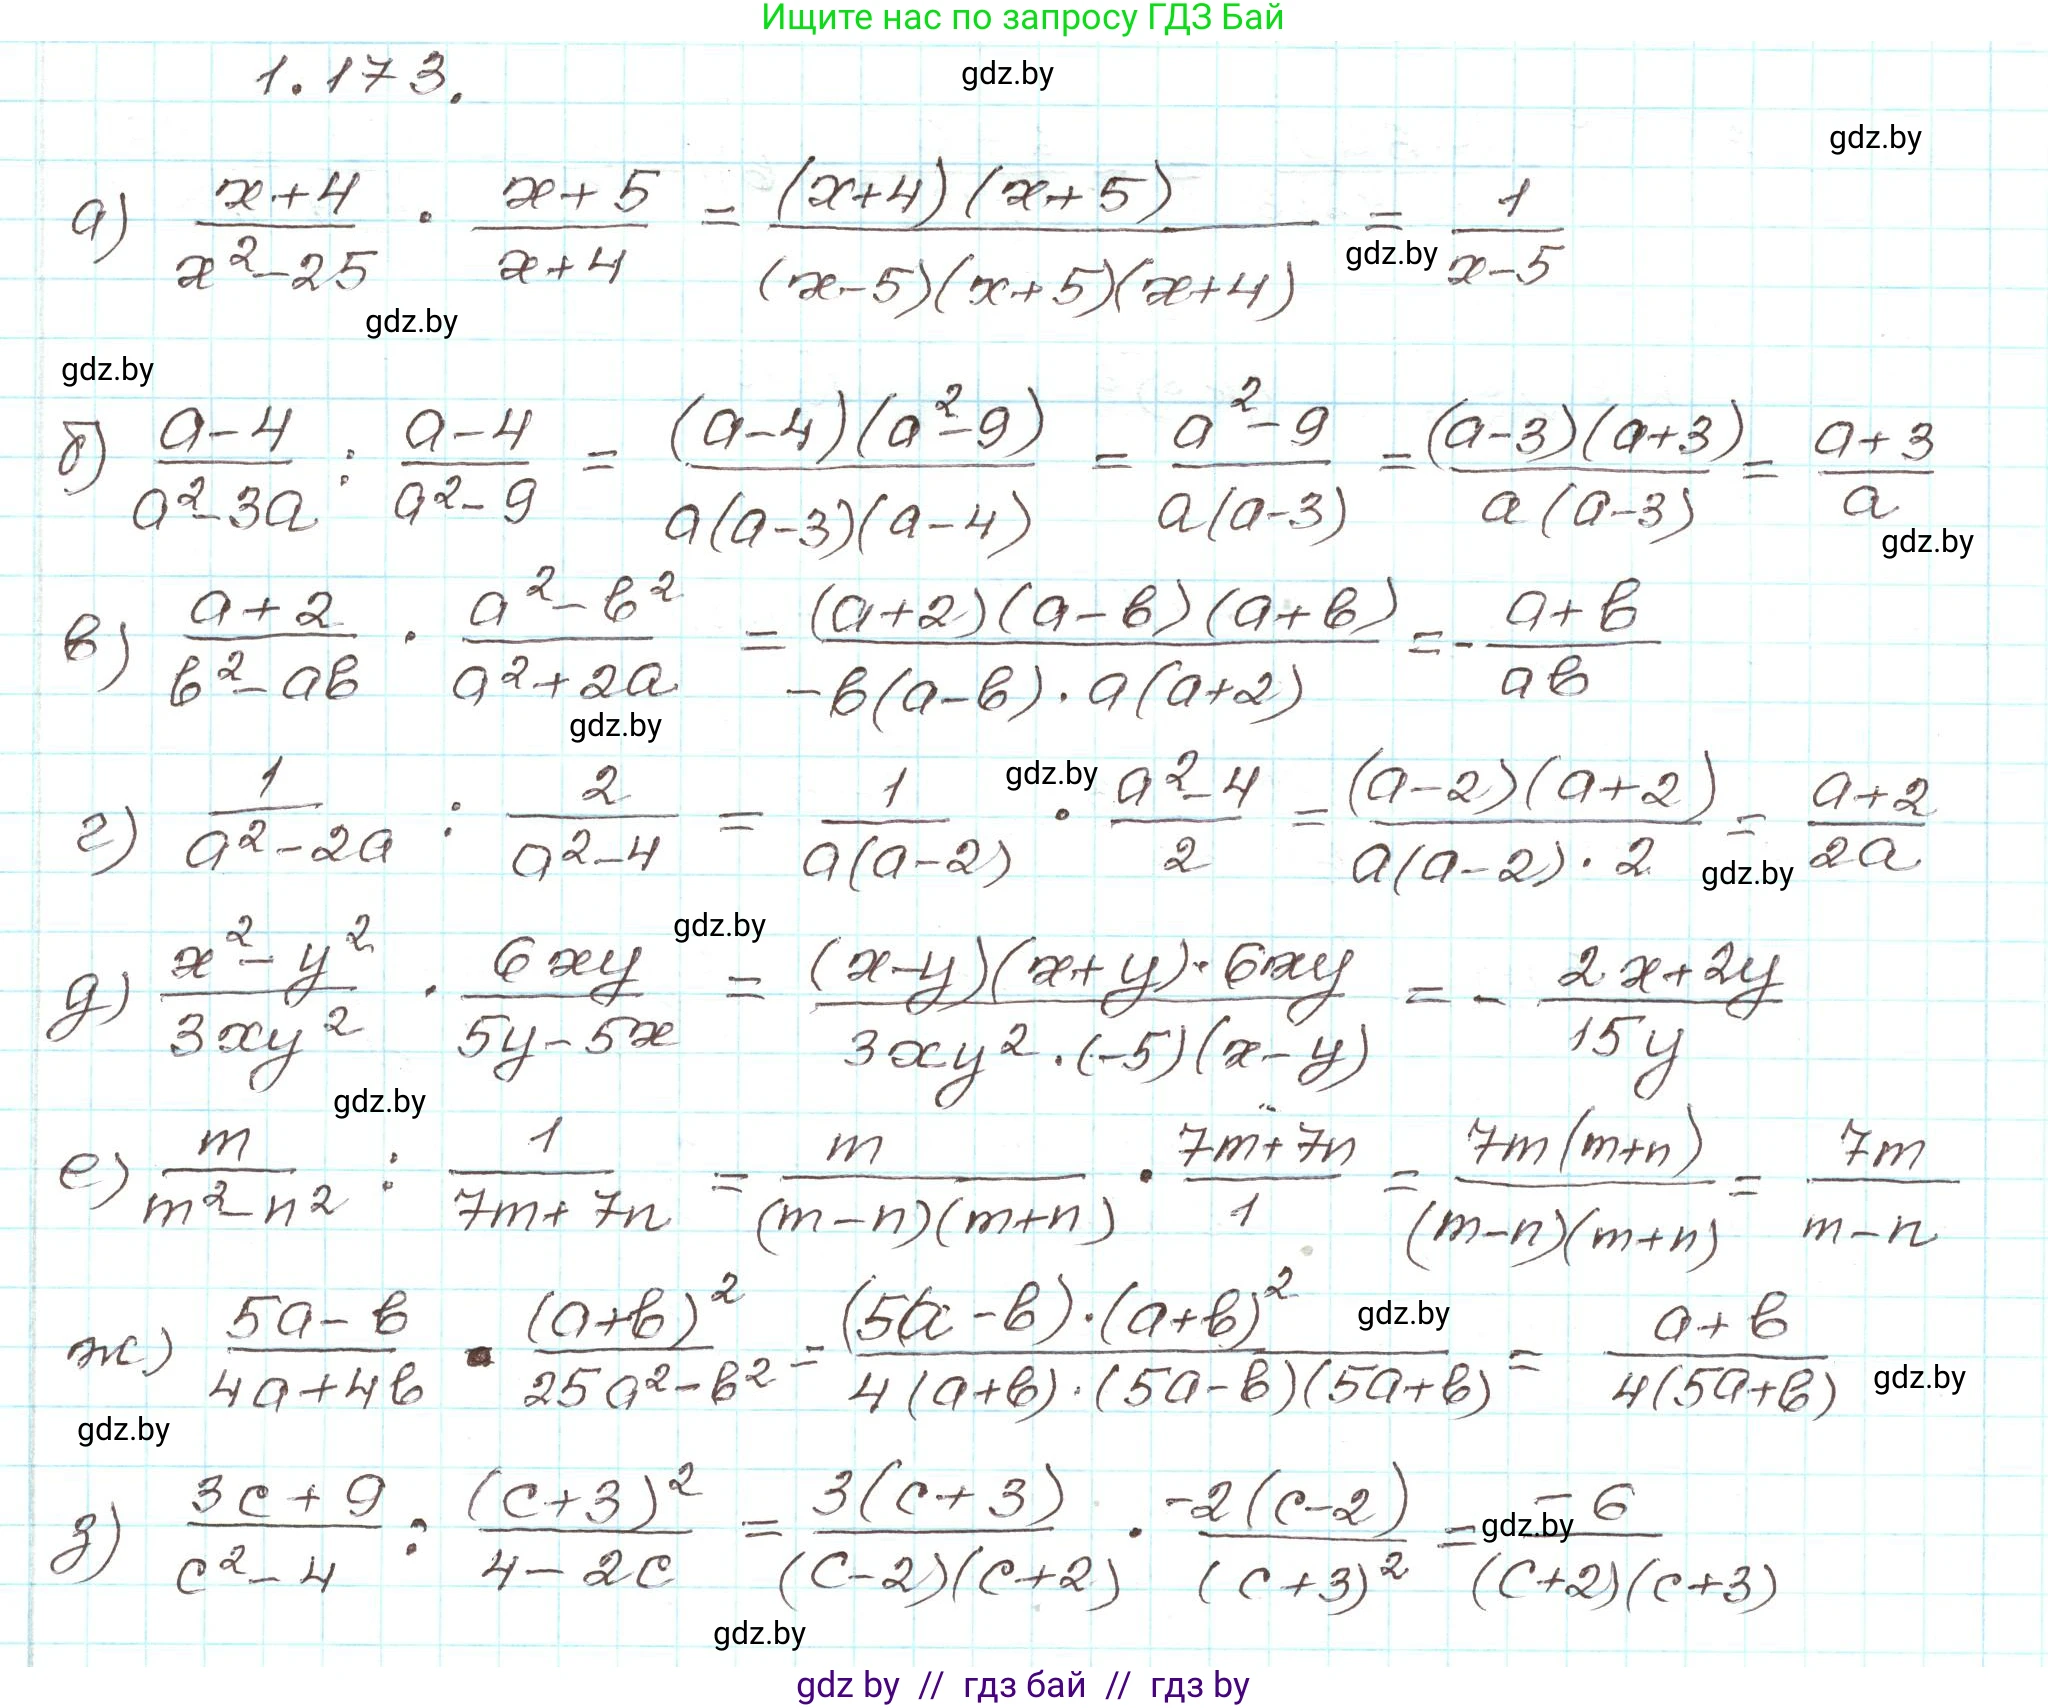 Ищите нас по запросу ГДЗ Бай
1.173.
gdz.by
gdz.by
а) (x+4)/(x²-25) · (x+5)/(x+4) = ((x+4)(x+5))/((x-5)(x+5)(x+4)) = 1/(x-5)
gdz.by
gdz.by
gdz.by
б) (a-4)/(a²-3a) : (a-4)/(a²-9) = ((a-4)(a²-9))/(a(a-3)(a-4)) = (a²-9)/(a(a-3)) = ((a-3)(a+3))/(a(a-3)) = (a+3)/a
gdz.by
в) (a+2)/(b²-ab) · (a²-b²)/(a²+2a) = ((a+2)(a-b)(a+b))/(-b(a-b)·a(a+2)) = -(a+b)/(ab)
gdz.by
gdz.by
г) 1/(a²-2a) : 2/(a²-4) = 1/(a(a-2)) · (a²-4)/2 = ((a-2)(a+2))/(a(a-2)·2) = (a+2)/(2a)
gdz.by
gdz.by
д) (x²-y²)/(3xy²) · (6xy)/(5y-5x) = ((x-y)(x+y)·6xy)/(3xy²·(-5)(x-y)) = -(2x+2y)/(15y)
gdz.by
е) m/(m²-n²) : 1/(7m+7n) = m/((m-n)(m+n)) · (7m+7n)/1 = (7m(m+n))/((m-n)(m+n)) = 7m/(m-n)
gdz.by
ж) (5a-b)/(4a+4b) · (a+b)²/(25a²-b²) = ((5a-b)·(a+b)²)/(4(a+b)·(5a-b)(5a+b)) = (a+b)/(4(5a+b))
gdz.by
gdz.by
з) (3c+9)/(c²-4) : (c+3)²/(4-2c) = (3(c+3))/((c-2)(c+2)) · (-2(c-2))/(c+3)² = -6/((c+2)(c+3))
gdz.by
gdz.by
gdz by // гдз бай // гдз by